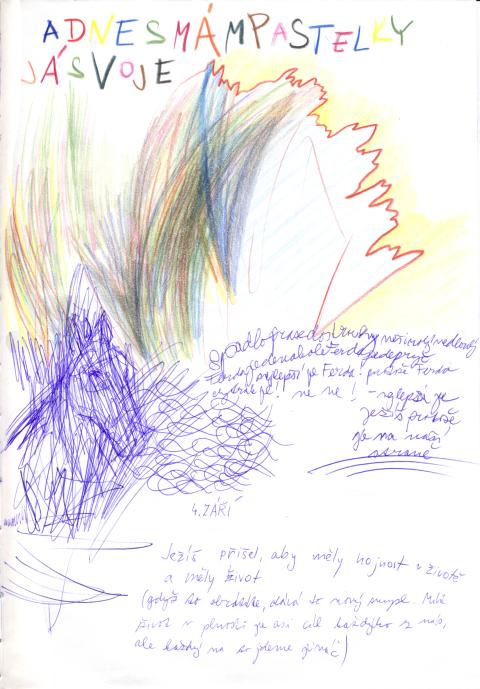 A DNES MÁM PASTELKY
JÁ SVOJE
nejlepší je Ferda! protože Ferda
ne ne! - nejlepší je
ježíš protože
je na naší
straně
4. ZÁŘÍ
Ježíš přišel, aby měly hojnost v životě
a měly život
(když to obrátíte, dává to nový smysl. Mít
život v plnosti je asi cíl každýho z nás,
ale každý na to jdeme jináč)